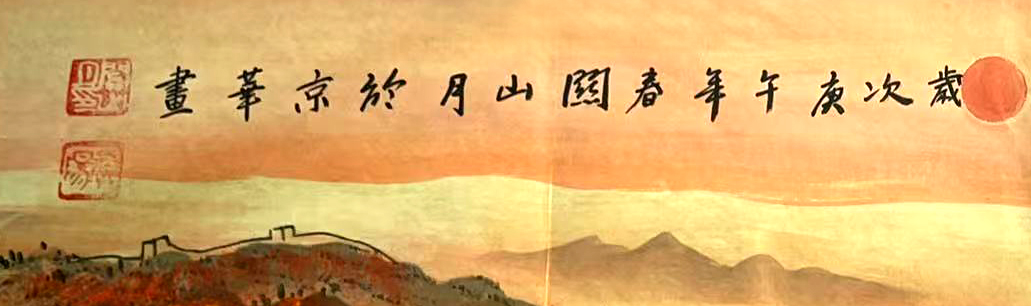 歲次庚午年春關山月於京華畫